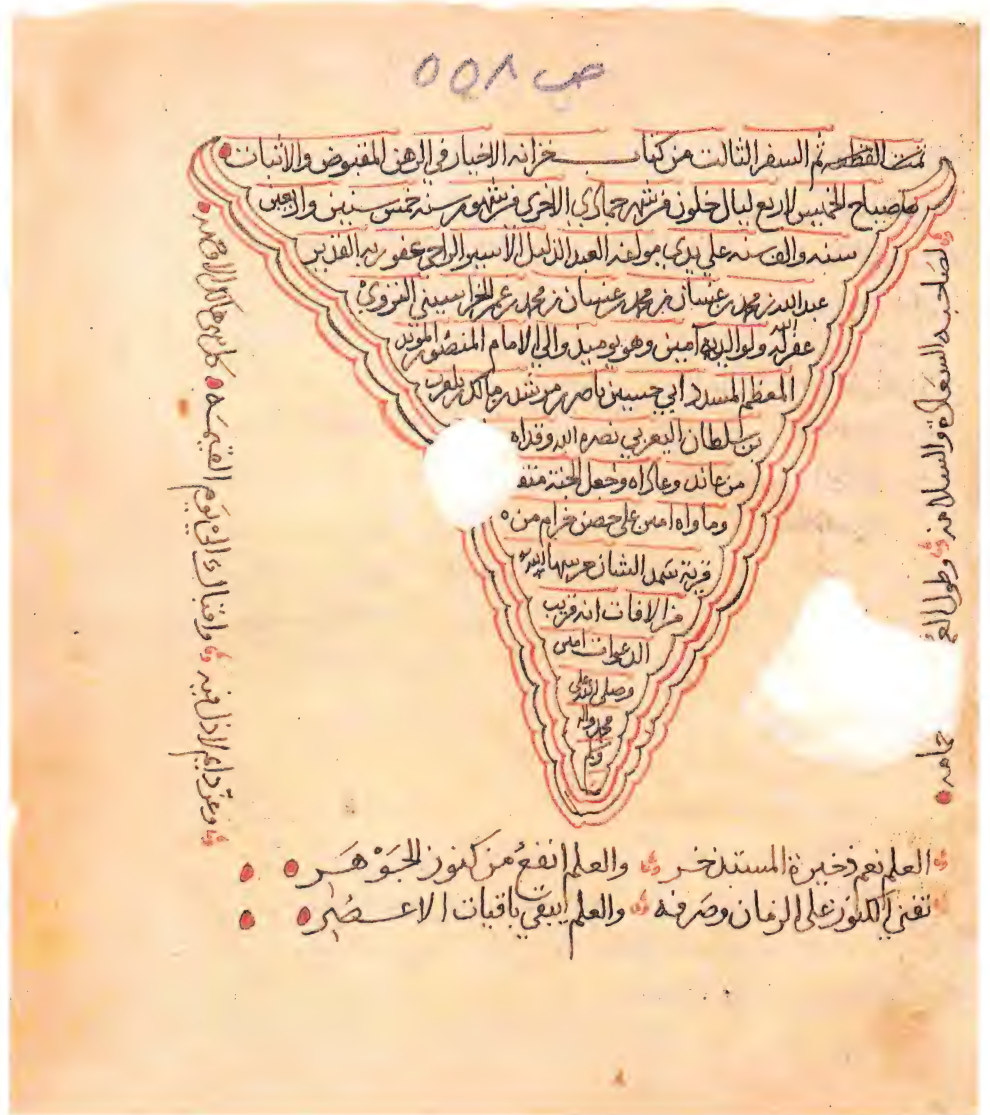 ص ٥٥٨
تم السفر الثالث من كتاب خزانه الاخيار في الرهن المقبوض والاثبات
صباح الخميس لاربع ليال خلون من شهر جمادي الاخرى من شهور سنه خمس سنين واربعين
سنه والف سنه على يدي مولفه العبد الذليل الاسير الراجي عفو ربه القدير
عبدالله بن محمد بن غسان بن محمد بن غسان بن محمد بن عمر الخراسيني النزوي
غفر الله له ولوالديه آمين وهو يوميذ والي الامام المنصور المويد
المعظم المسدد ابي حسين ناصر بن مرشد بن مالك بن بلعرب
بن سلطان اليعربي نصره الله وقداه
من عانده وعاداه وجعل الجنة
وماواه امين على حصن
قرية سمد الشان حرسها الله
من الافات انه قريب
الدعوات امين
وصلى الله على
محمد واله
وسلم
لصاحبه السعادة والسلامه وطول
حمامه
وعز دايم لا ذل فيه واقبال الى يوم القيمه
العلم نعم ذخيرة المستذخر والعلم انفع من كنوز الجوهر
تفنى الكنوز على الزمان وصرفه والعلم يبقى باقيات الاعصر